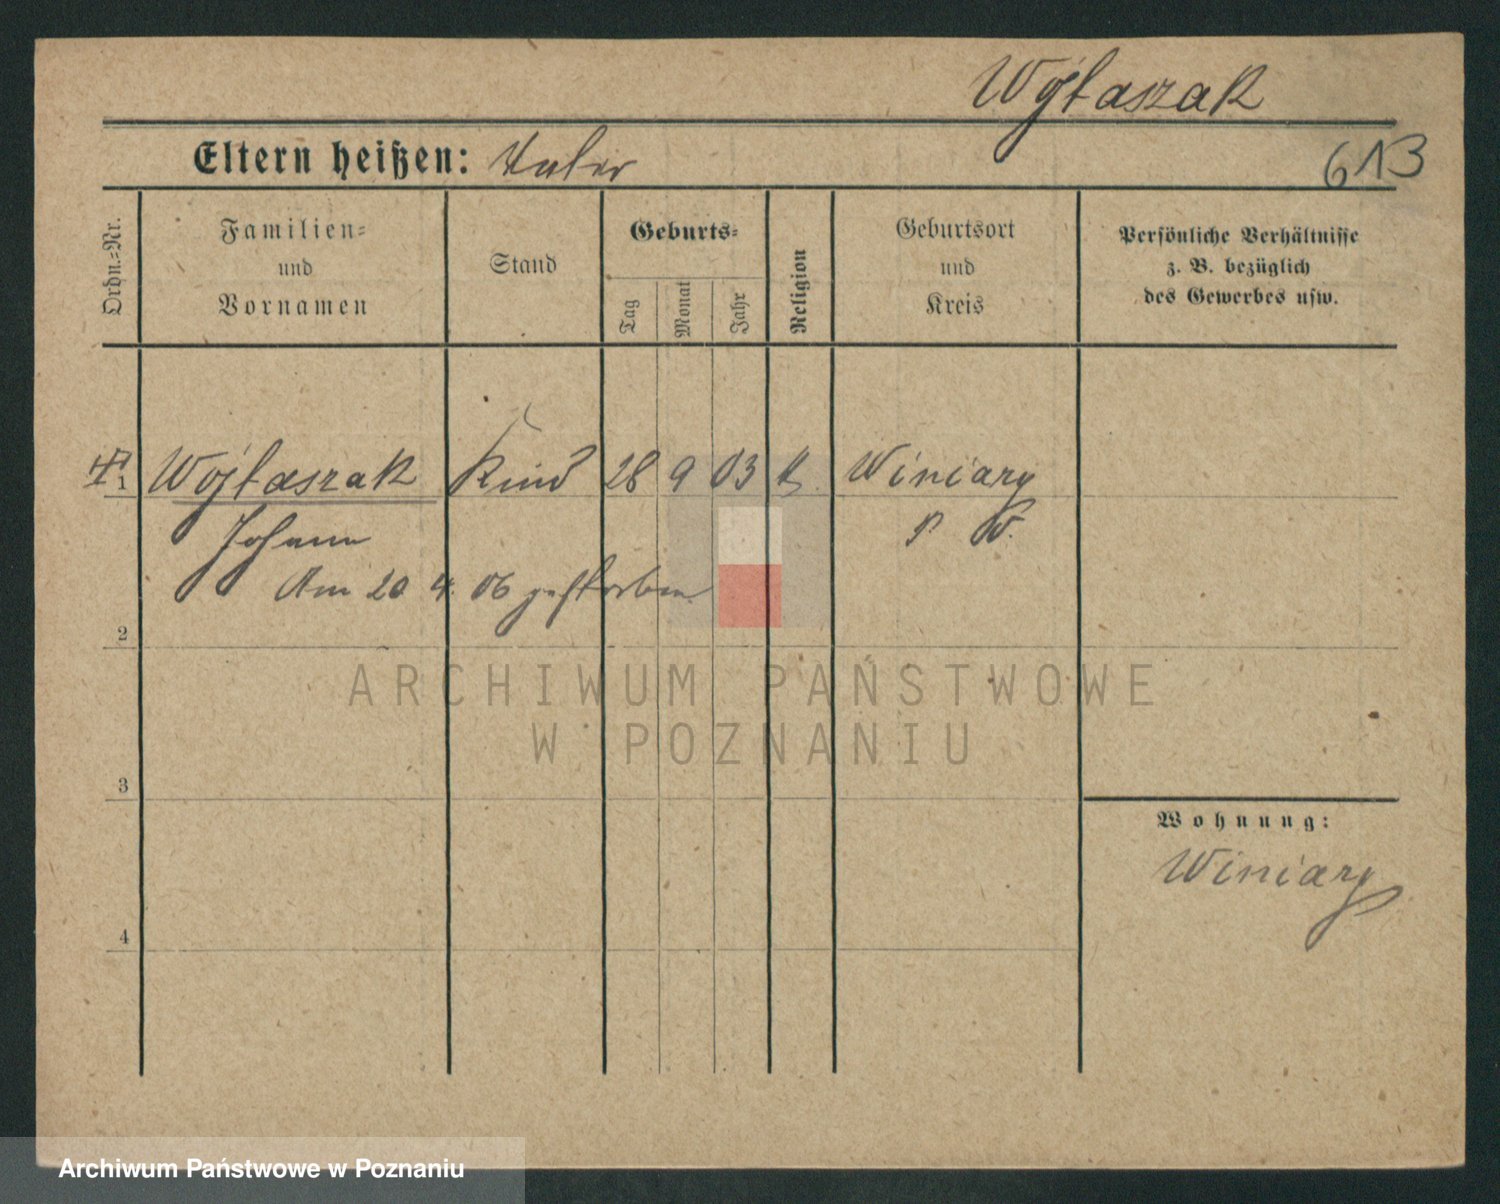 Wojtaszak
Eltern heißen:
613
Ordn.=Nr.
Familien=
und
Vornamen
Stand
Geburts=
Tag
Monat
Jahr
Religion
Geburtsort
und
Kreis
Persönliche Verhältnisse
z. B. bezüglich
des Gewerbes usw.
1 Wojtaszak Kind 28 9 03 k. Winiary
Johann P. W.
Am 20 4. 06 gestorben
2
3
4
Wohnung:
Winiary
ARCHIWUM PAŃSTWOWE
W POZNANIU
Archiwum Państwowe w Poznaniu